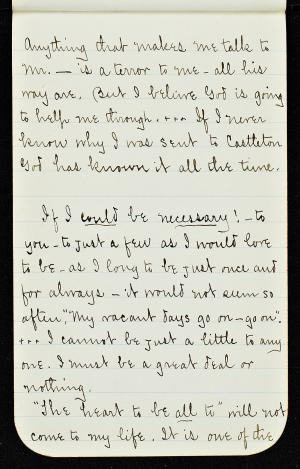 Anything that makes me talk to
Mr. — is a terror to me - all his
way are. But I belive God is going
to help me through. + + + If I never
know why I was sent to Castleton
God has known it all the time.
If I could be necessary! - to
you - to just a few as I would love
to be - as I long to be just once and
for always - it would not seem so
often, "My vacant days go on - go on".
+ + + I cannot be just a little to any
one. I must be a great deal or
nothing.
"The heart to be all to" will not
come to my life. It is one of the